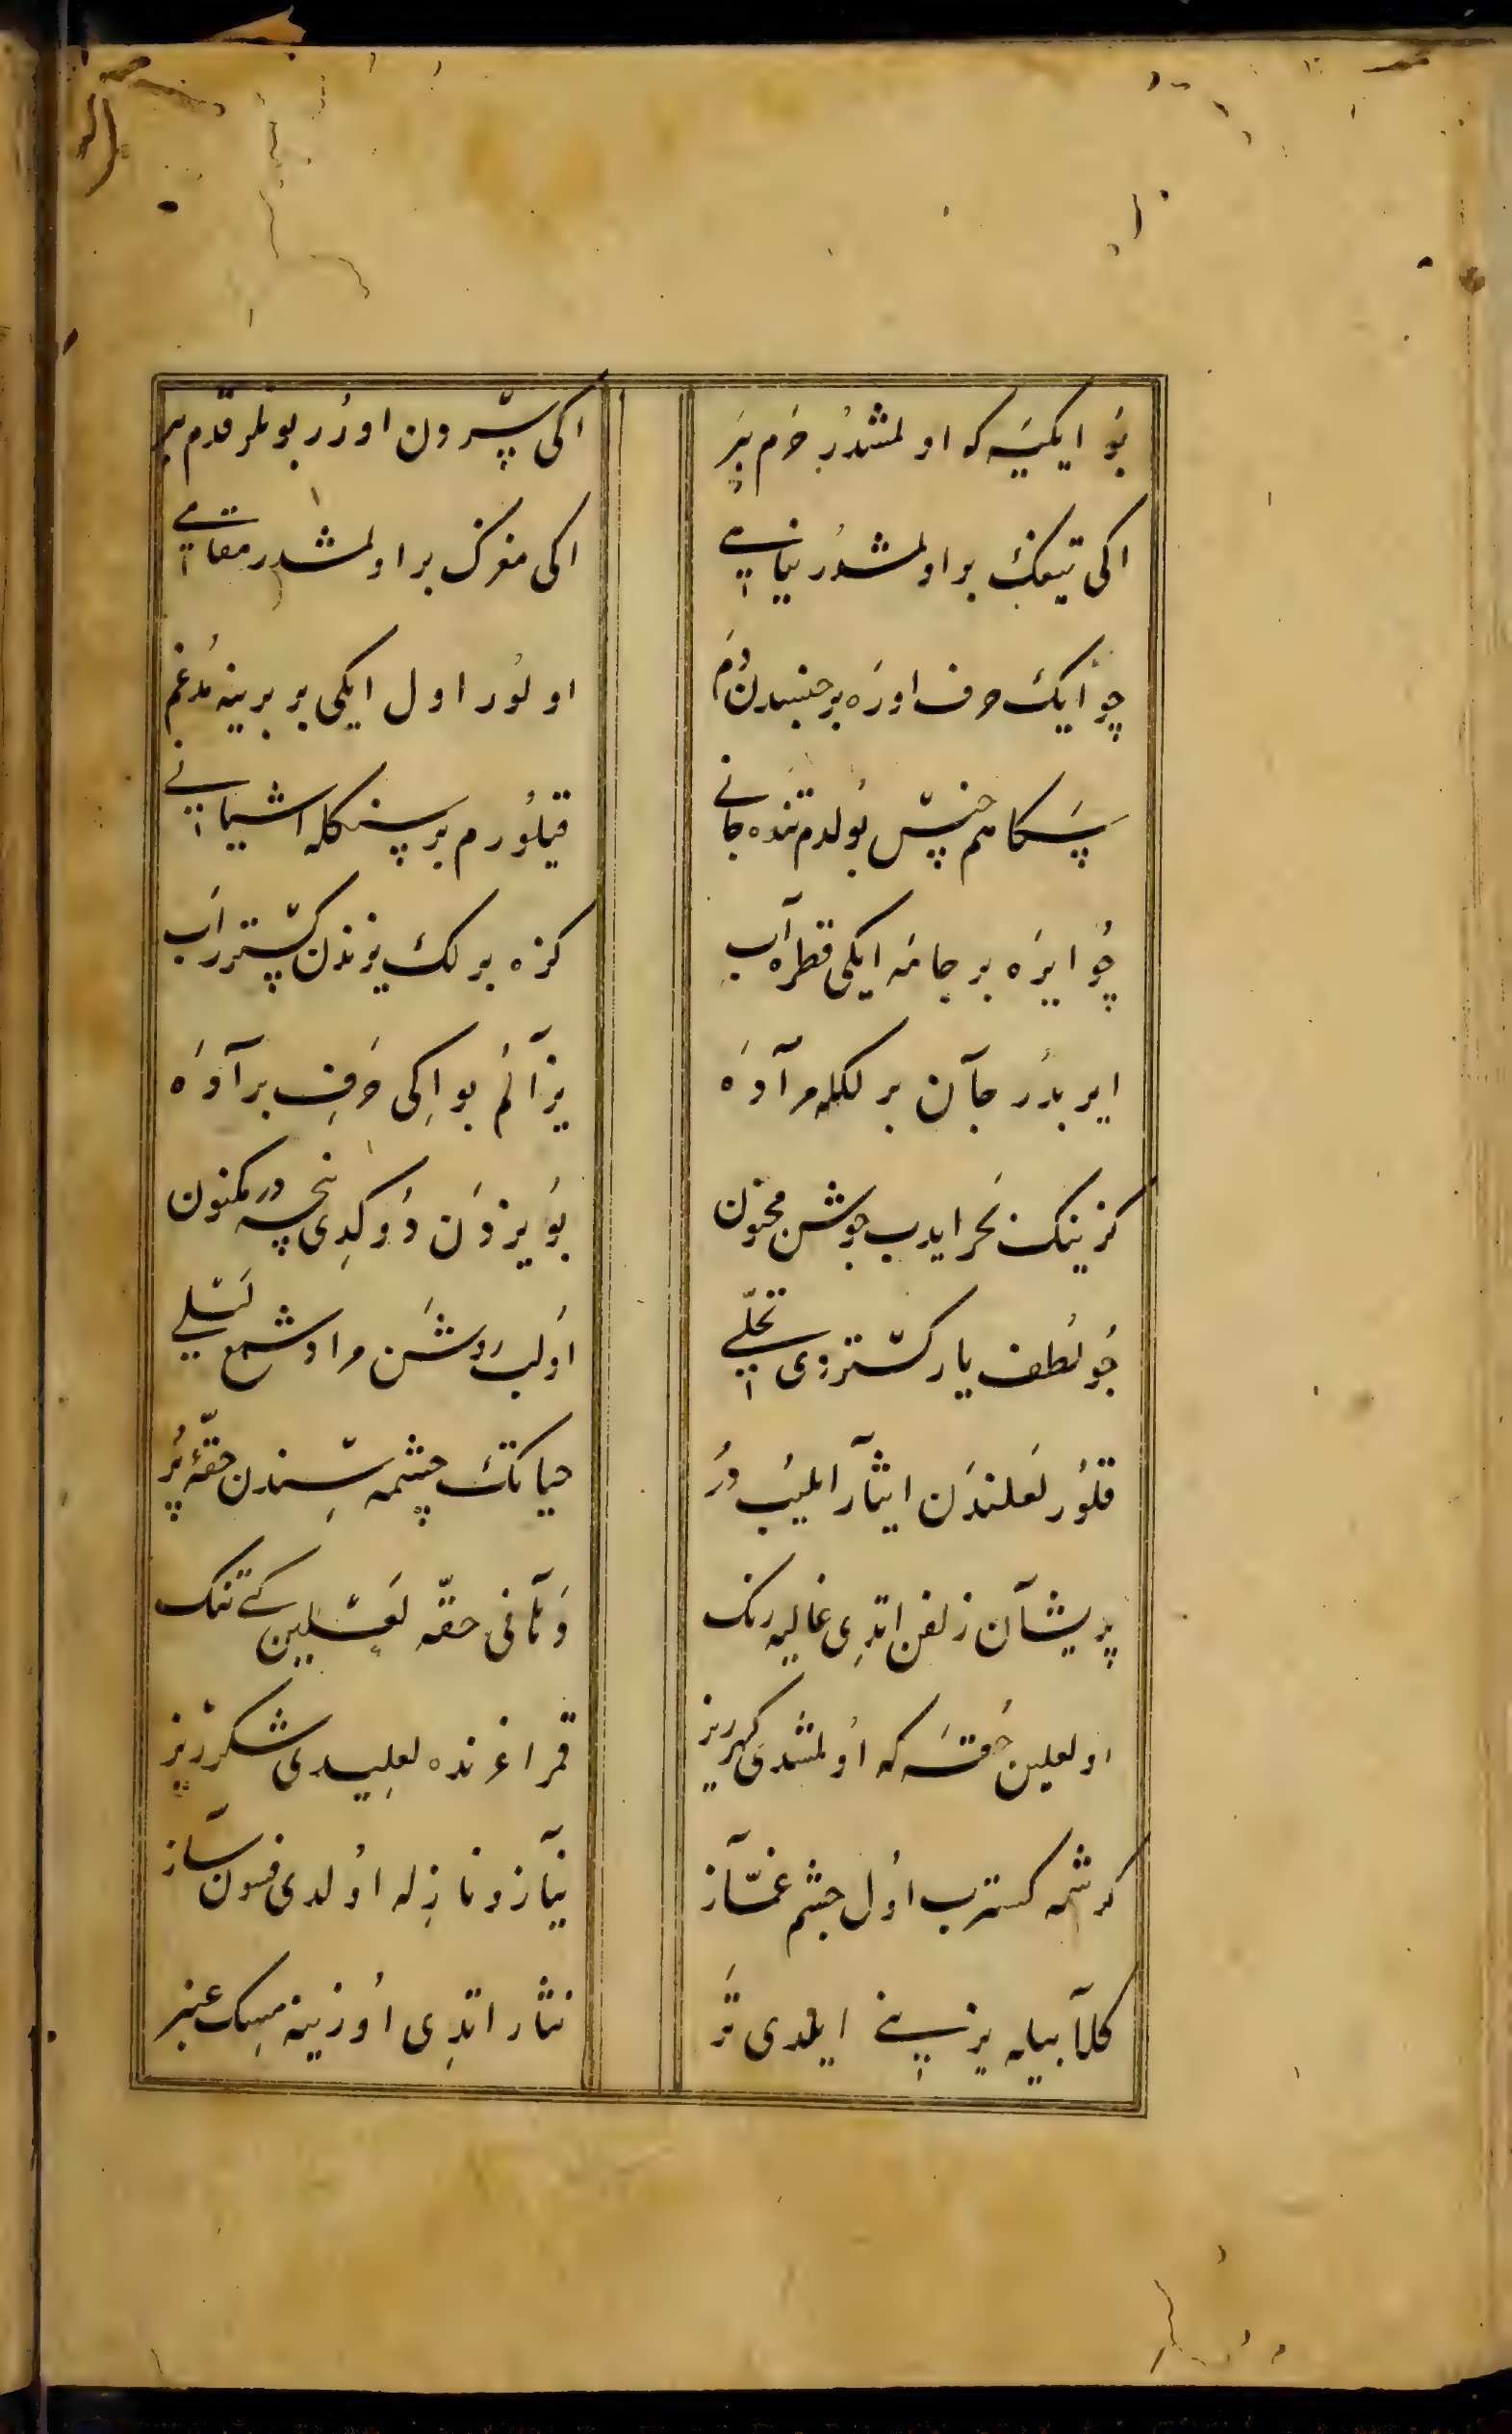 بو ایکیه که اولمشدر خرم بیر اکی سردن اوزر بونلر قدم بیر
اکی تیغک بر اولمشدر نیامی اکی مغزک بر اولمشدر مقامی
چو ایک حرف اوره بر جنسدن دم اولور اول ایکی بر برینه مدغم
سکا هم جنس بولدم تنده جانی قیلورم بر سنکله اشیانی
چو ایره بر جامه ایکی قطره آب کزه برلک یوزندن کسترر آب
ایر بدر جآن برلکله مرآده یز آلم بو اکی حرف بر آده
کزینک بحر ایدب جوشن مخزون بو یزدن دوکدی نچه در مکنون
چو لطف یار کستردی تجلی اولب روشن مراد شمع تسلی
قلور لعلندن ایثآر ایلیب در حیاتک چشمه سندن حقه پر
پریشآن زلفن اتدی غالیه رنک حقه لعلین کی تنک
او لعلین حقه که اولمشدی کهرریز قمر اغزنده لعلیدی شکرریز
کرشمه کسترب اول چشم غمآز نیآز و نازله اولدی فسون سآز
کلآبیله یزنی ایلدی تر نثار اتدی اوزینه مسک عنبر